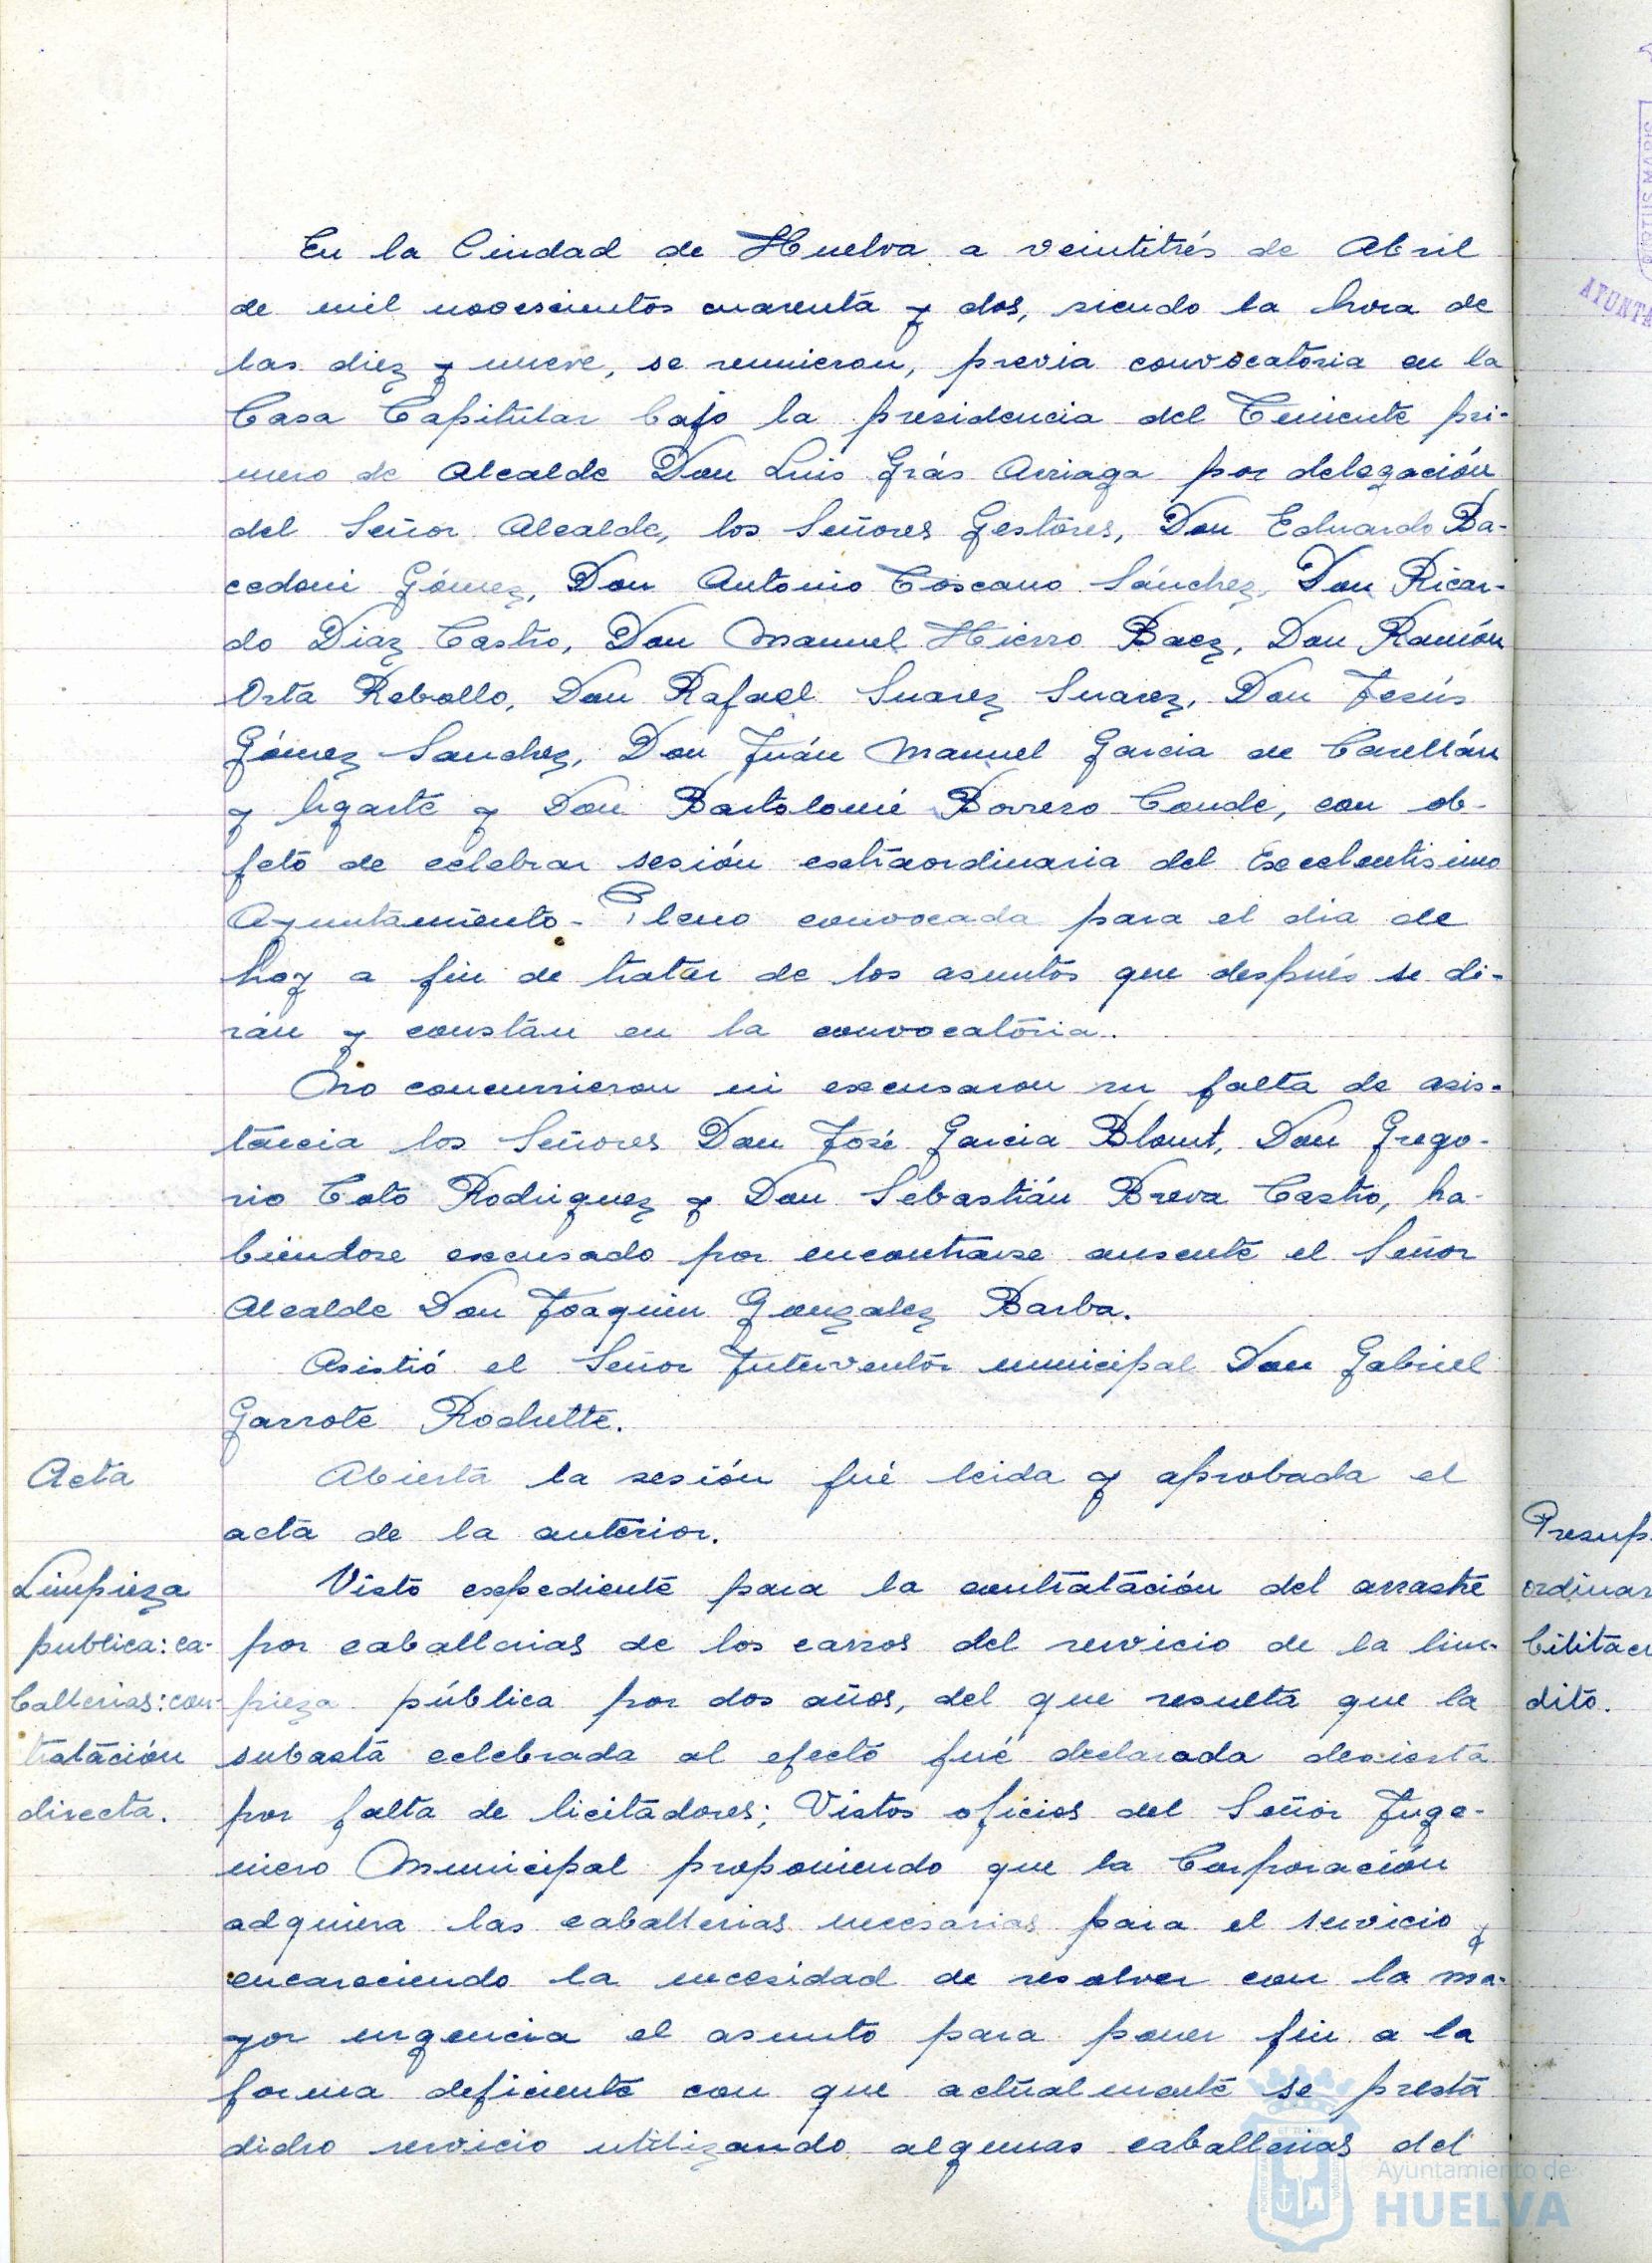 En la Ciudad de Huelva a veintitrés de Abril
de mil novescientos cuarenta y dos, siendo la hora de
las diez y nueve, se reunieron, previa convocatoria en la
Casa Capitular bajo la presidencia del Teniente pri-
mero de Alcalde Don Luis Grás Arriaga por delegación
del Señor Alcalde, los Señores Gestores, Don Eduardo Ba-
cedoni Gómez, Don Antonio Toscano Sánchez, Don Ricar-
do Diaz Castro, Don Manuel Hierro Baez, Don Ramón
Orta Rebollo, Don Rafael Suarez Suarez, Don Jesús
Gómez Sanchez, Don Juán Manuel Garcia de Carellán
y Ugarte y Don Bartolomé Borrero Conde, con ob-
jeto de celebrar sesión extraordinaria del Excelentisimo
Ayuntamiento-Pleno convocada para el dia de
hoy a fin de tratar de los asuntos que después se di-
rán y constan en la convocatoria.
No concurrieron ni excusaron su falta de asis-
tencia los Señores Don José Garcia Blount, Don Grego-
rio Coto Rodriguez y Don Sebastián Breva Castro, ha-
biendose excusado por encontrarse ausente el Señor
Alcalde Don Joaquin Gonzalez Barba.
Asistió el Señor Interventor municipal Don Gabriel
Garrote Rochette.
Acta
Abierta la sesión fué leida y aprobada el
acta de la anterior.
Limpieza
publica: ca-
ballerias: con-
tratación
directa.
Visto expediente para la contratación del arrastre
por caballerias de los carros del servicio de la lim-
pieza pública por dos años, del que resulta que la
subasta celebrada al efecto fué declarada desierta
por falta de licitadores; Vistos oficios del Señor Inge-
niero Municipal proponiendo que la Corporación
adquiera las caballerias necesarias para el servicio y
encareciendo la necesidad de resolver con la ma-
yor urgencia el asunto para poner fin a la
forma deficiente con que actualmente se presta
dicho servicio utilizando algunas caballerias del
Presup.
ordinar
bilitacr
dito.
Ayuntamiento de
HUELVA